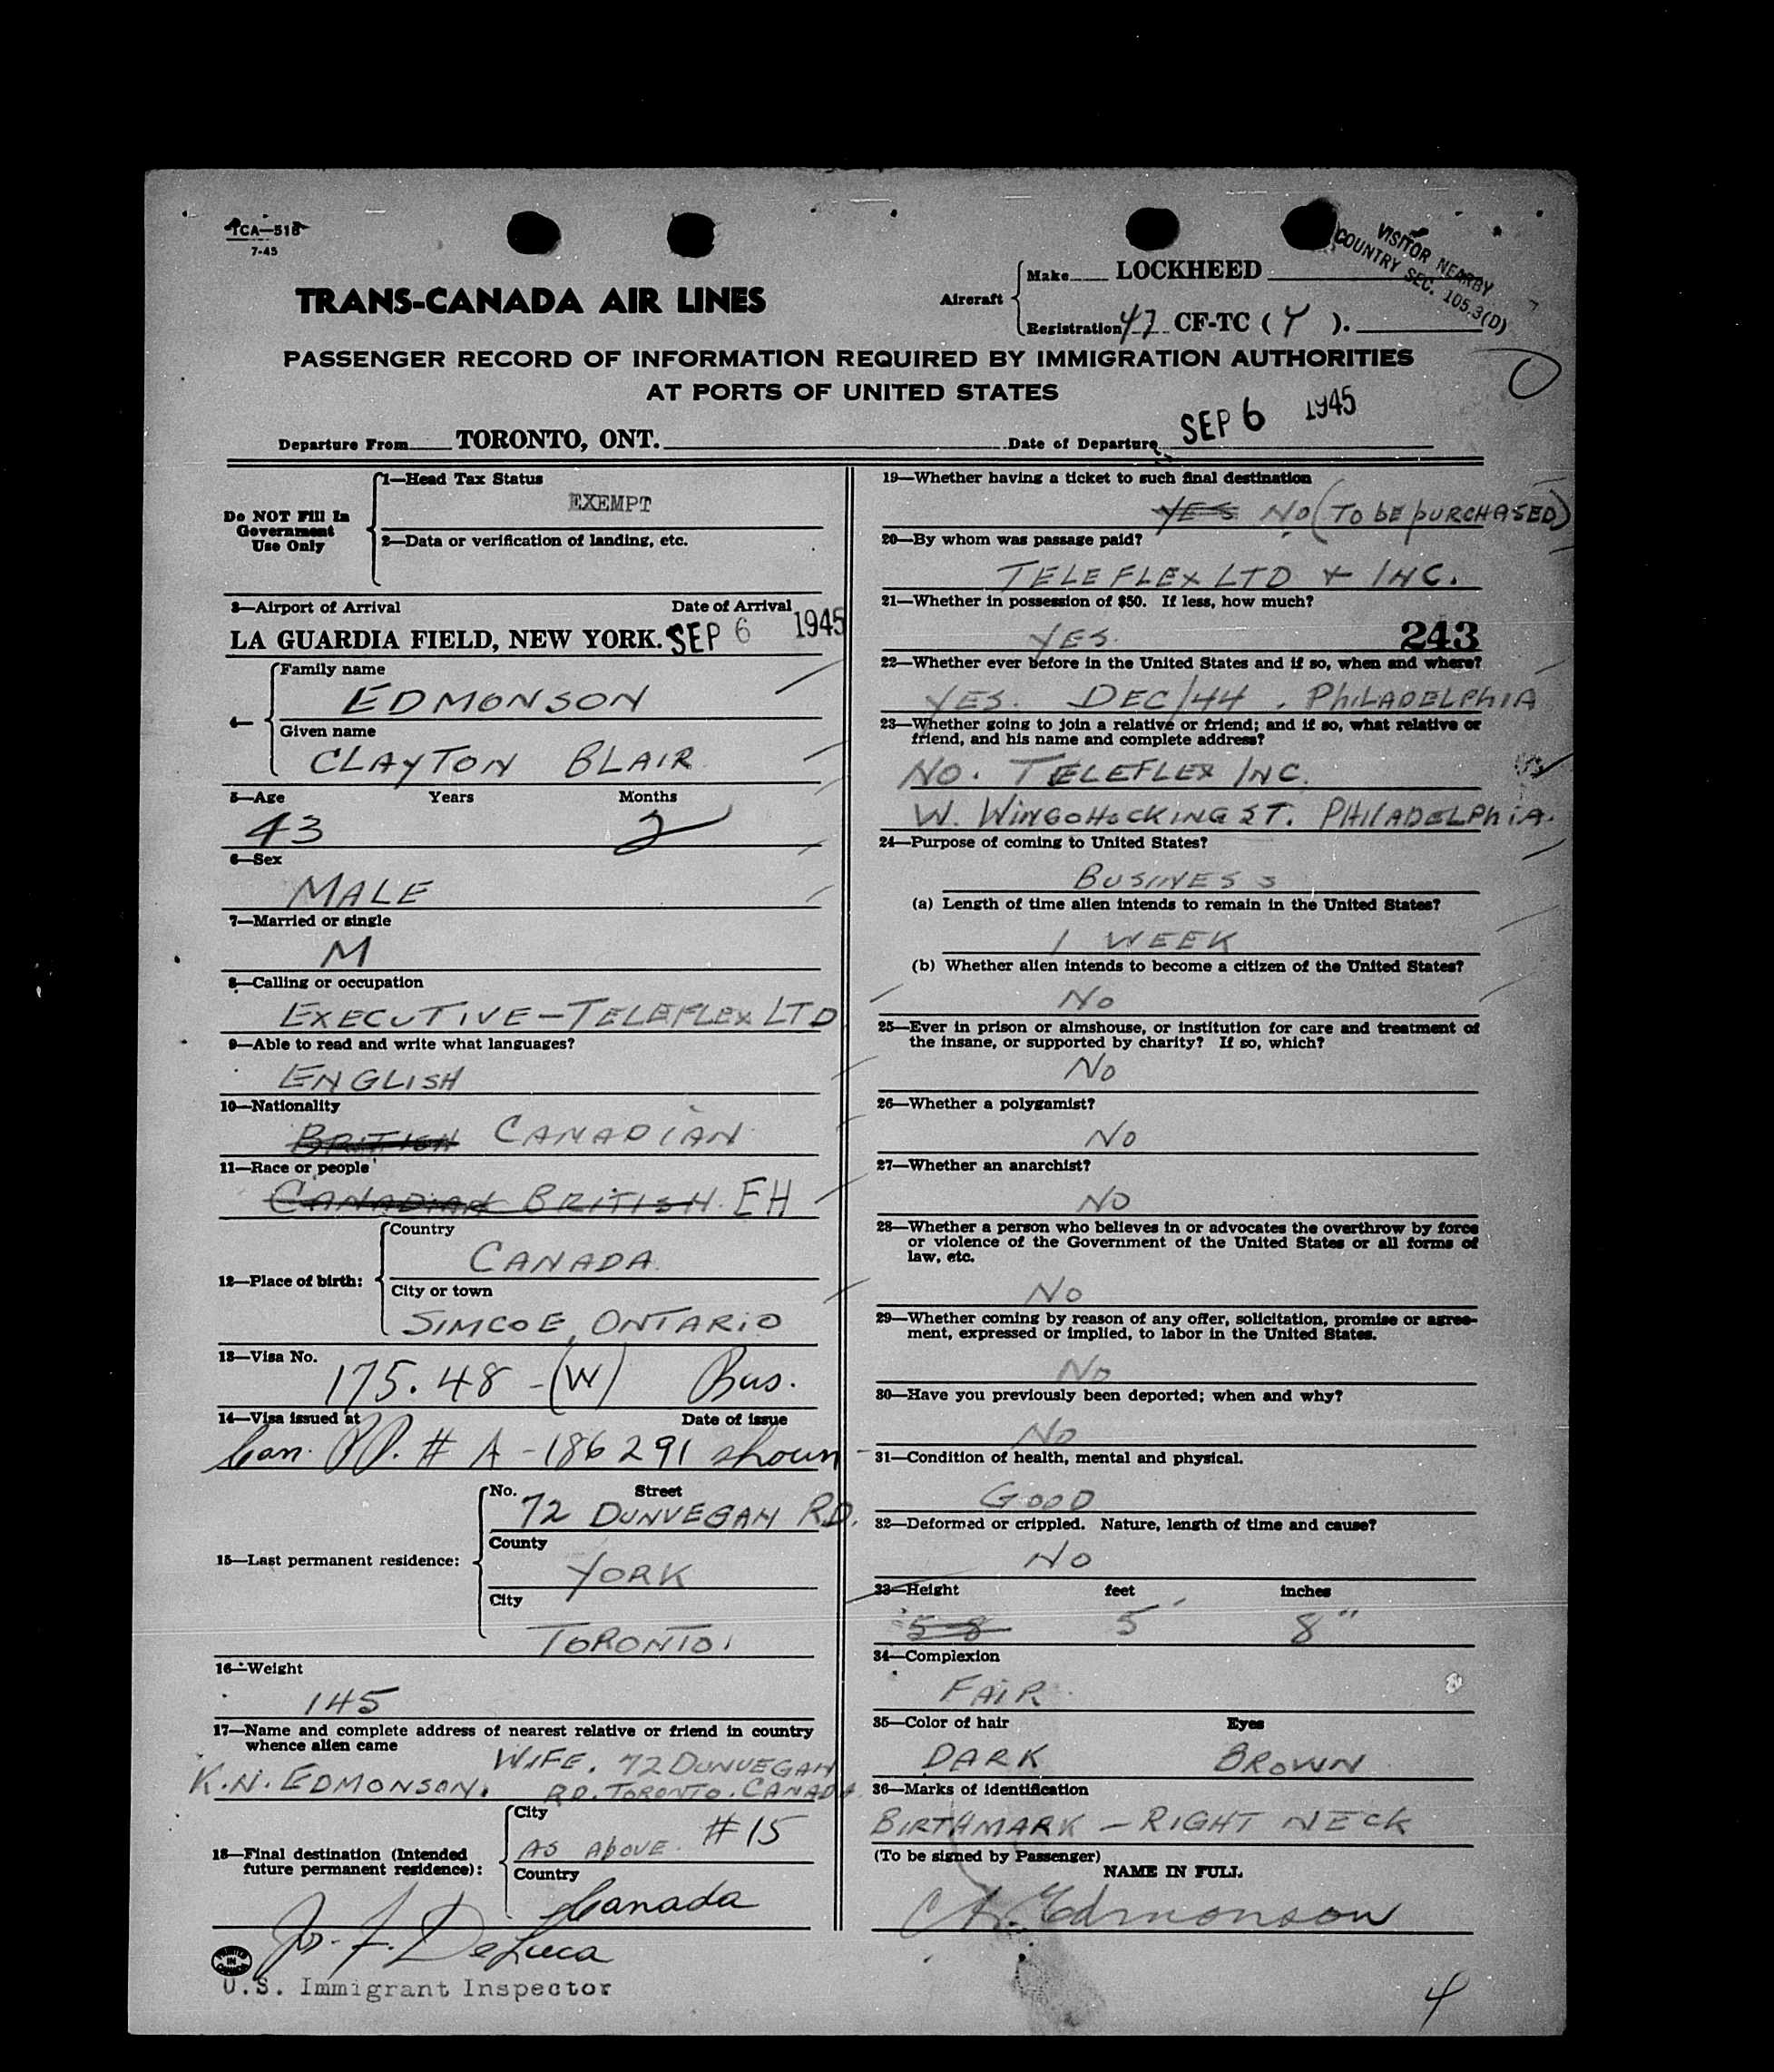 TCA—518
7-45
VISITOR NEARBY
COUNTRY SEC. 105.3(D)
TRANS-CANADA AIR LINES
Aircraft
Make LOCKHEED
Registration 47 CF-TC ( Y ).
PASSENGER RECORD OF INFORMATION REQUIRED BY IMMIGRATION AUTHORITIES
AT PORTS OF UNITED STATES
Departure From TORONTO, ONT. Date of Departure SEP 6 1945
Do NOT Fill In
Government
Use Only
1—Head Tax Status
EXEMPT
2—Data or verification of landing, etc.
3—Airport of Arrival Date of Arrival
LA GUARDIA FIELD, NEW YORK. SEP 6 1945
4—
Family name
EDMONSON
Given name
CLAYTON BLAIR
5—Age Years Months
43 2
6—Sex
MALE
7—Married or single
M
8—Calling or occupation
EXECUTIVE—TELEFLEX LTD
9—Able to read and write what languages?
ENGLISH
10—Nationality
BRITISH CANADIAN
11—Race or people
CANADIAN BRITISH. EH
12—Place of birth:
Country
CANADA
City or town
SIMCOE, ONTARIO
13—Visa No.
175.48 -(W) Bus.
14—Visa issued at Date of issue
Can. PP. # A-186291 shown
15—Last permanent residence:
No. Street
72 DUNVEGAN RD.
County
YORK
City
TORONTO
16—Weight
145
17—Name and complete address of nearest relative or friend in country
whence alien came
WIFE. 72 DUNVEGAN
K.N. EDMONSON. RD. TORONTO. CANADA
18—Final destination (Intended
future permanent residence):
City
AS ABOVE. #15
Country
Canada
Jo. F. DeLuca
PRINTED IN CANADA
U.S. Immigrant Inspector
19—Whether having a ticket to such final destination
YES NO (TO BE PURCHASED)
20—By whom was passage paid?
TELEFLEX LTD + INC.
21—Whether in possession of $50. If less, how much?
YES. 243
22—Whether ever before in the United States and if so, when and where?
YES. DEC/44. PHILADELPHIA
23—Whether going to join a relative or friend; and if so, what relative or
friend, and his name and complete address?
NO. TELEFLEX INC.
W. WINGOHOCKING ST. PHILADELPHIA.
24—Purpose of coming to United States?
BUSINESS
(a) Length of time alien intends to remain in the United States?
1 WEEK
(b) Whether alien intends to become a citizen of the United States?
NO
25—Ever in prison or almshouse, or institution for care and treatment of
the insane, or supported by charity? If so, which?
NO
26—Whether a polygamist?
NO
27—Whether an anarchist?
NO
28—Whether a person who believes in or advocates the overthrow by force
or violence of the Government of the United States or all forms of
law, etc.
NO
29—Whether coming by reason of any offer, solicitation, promise or agree-
ment, expressed or implied, to labor in the United States.
NO
30—Have you previously been deported; when and why?
NO
31—Condition of health, mental and physical.
GOOD
32—Deformed or crippled. Nature, length of time and cause?
NO
33—Height feet inches
5-8 5' 8"
34—Complexion
FAIR
35—Color of hair Eyes
DARK BROWN
36—Marks of identification
BIRTHMARK — RIGHT NECK
(To be signed by Passenger)
NAME IN FULL
C. B. Edmonson
4